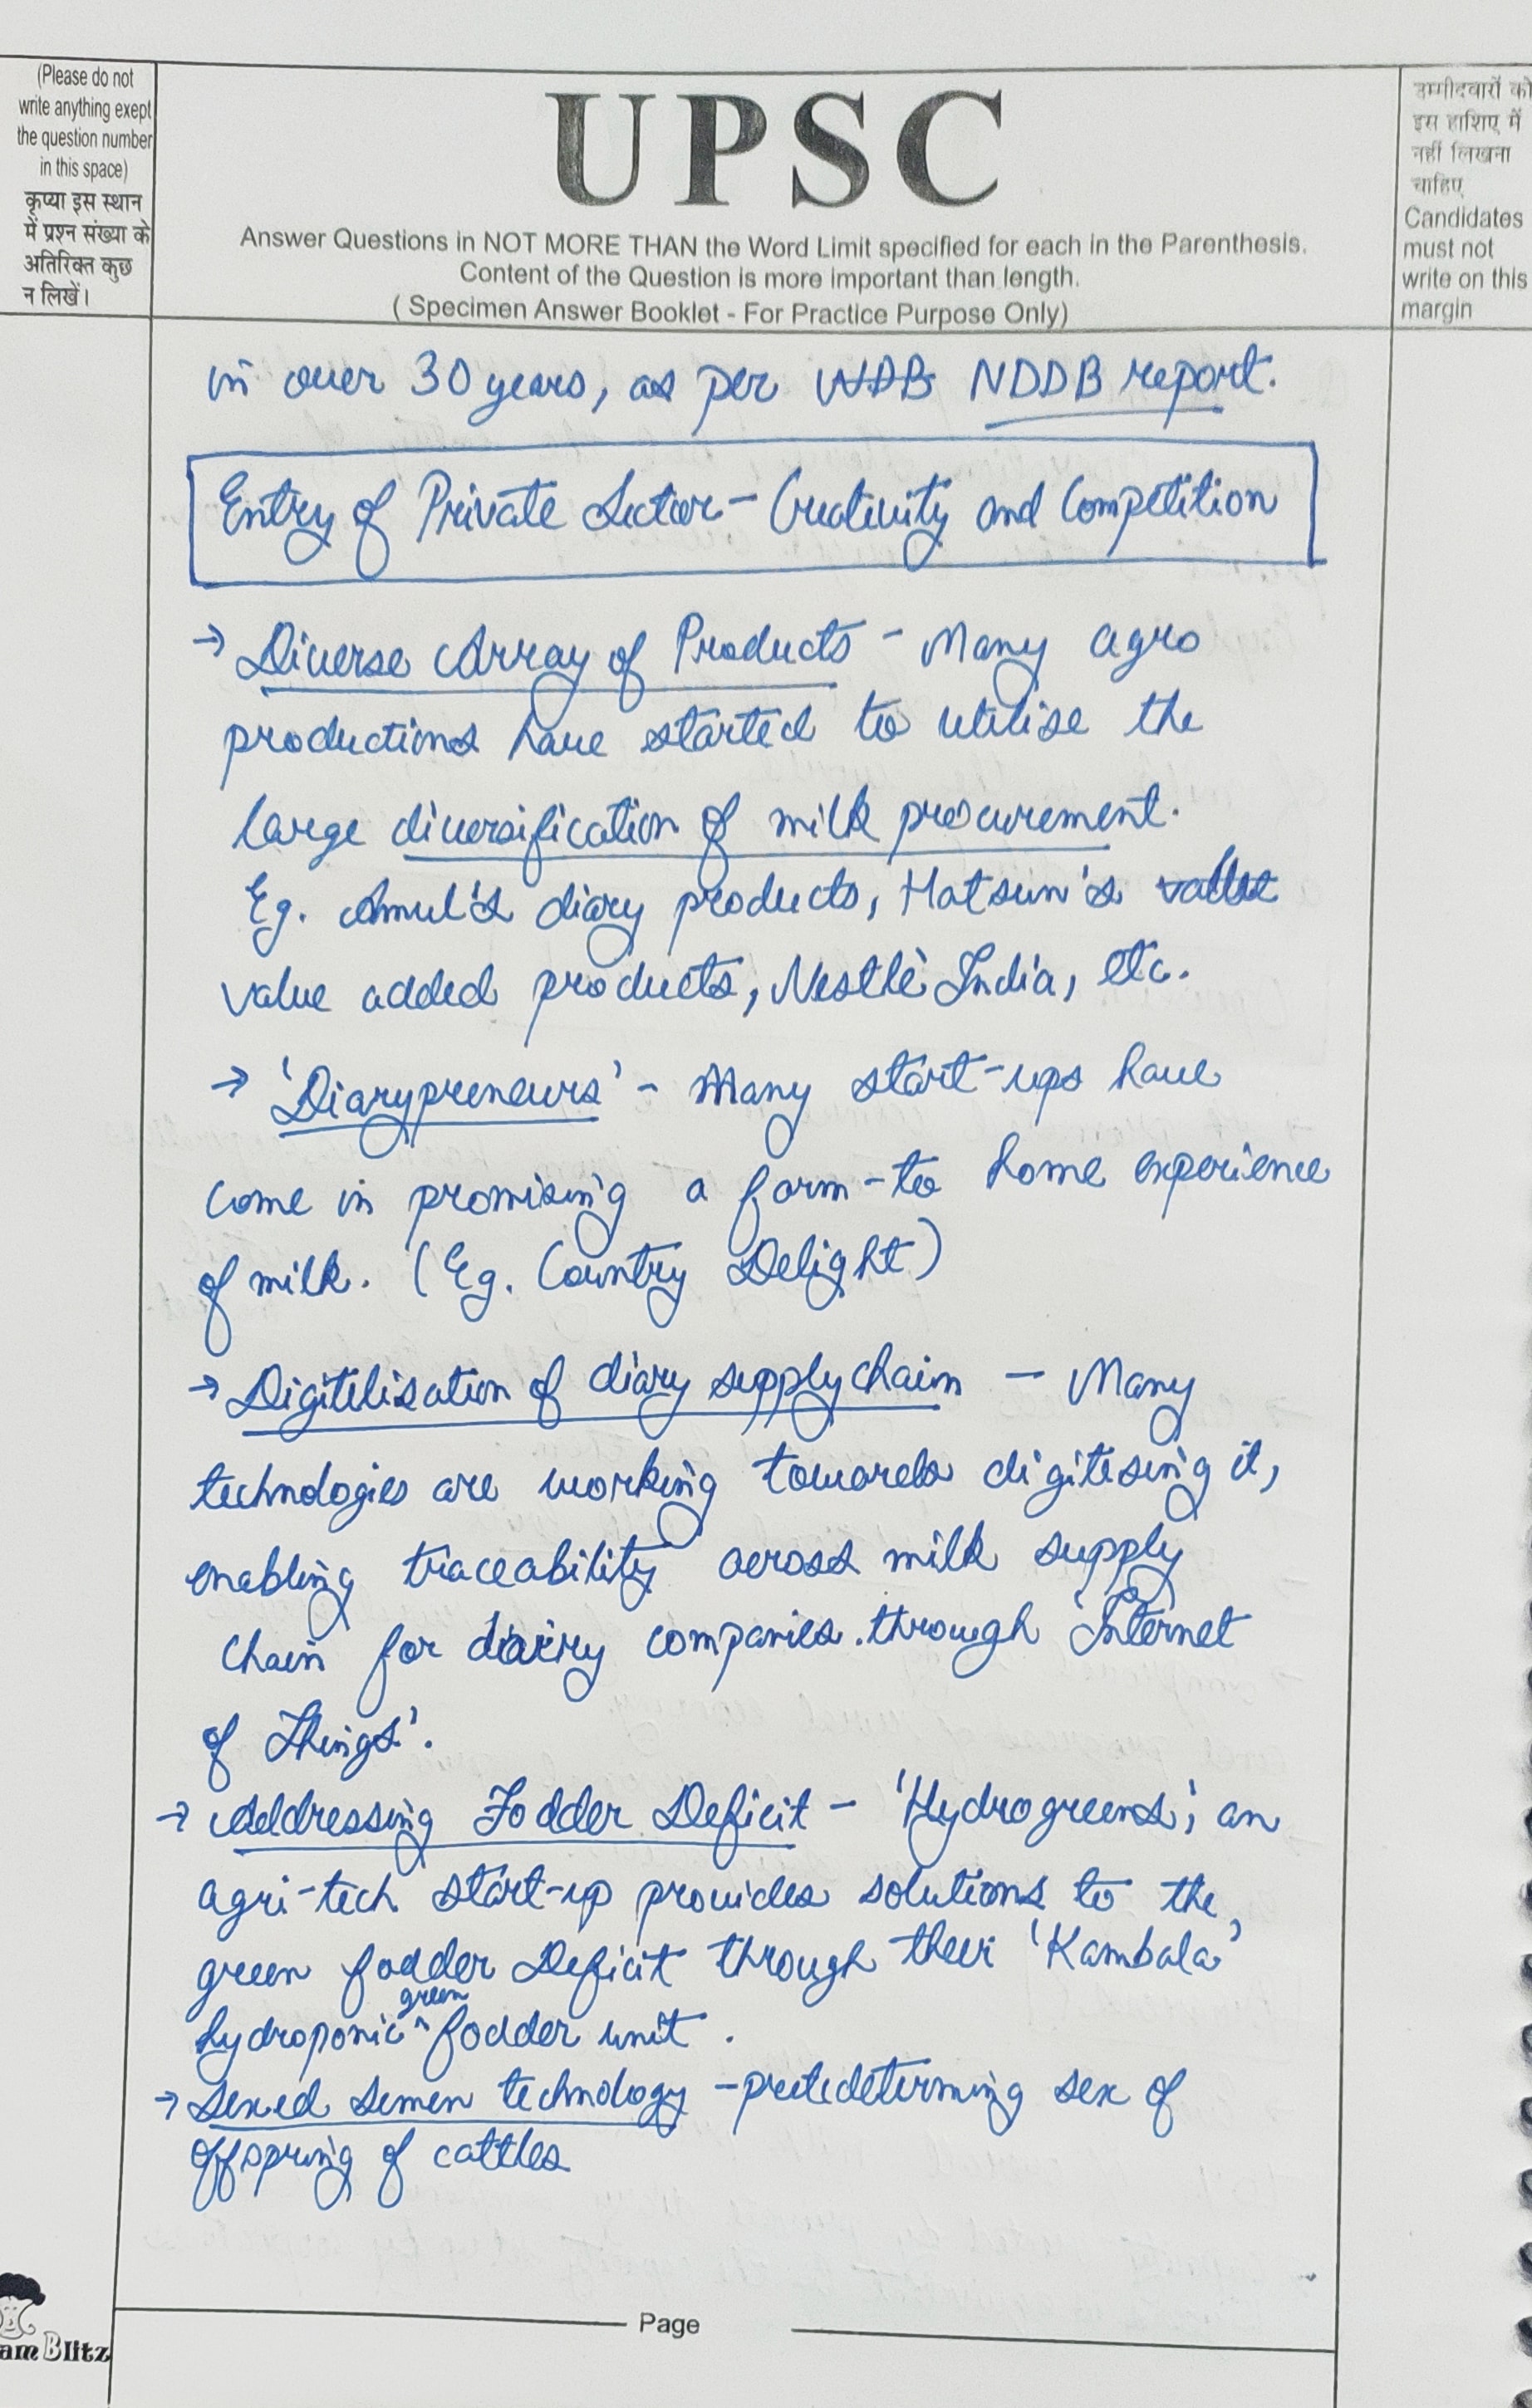 (Please do not
write anything exept
the question number
in this space)
कृप्या इस स्थान
में प्रश्न संख्या के
अतिरिक्त कुछ
न लिखें।
UPSC
Answer Questions in NOT MORE THAN the Word Limit specified for each in the Parenthesis.
Content of the Question is more important than length.
( Specimen Answer Booklet - For Practice Purpose Only)
उम्मीदवारों को
इस हाशिए में
नहीं लिखना
चाहिए
Candidates
must not
write on this
margin
in over 30 years, as per NDDB report.
Entry of Private Sector - Creativity and Competition
→ Diverse Array of Products - Many agro
productions have started to utilise the
large diversification of milk procurement.
Eg. Amul's diary products, Hatsun's
value added products, Nestlè India, etc.
→ 'Diarypreneurs' - Many start-ups have
come in promising a farm-to home experience
of milk. (Eg. Country Delight)
→ Digitilisation of diary supply chain - Many
technologies are working towards digitising it,
enabling traceability across milk supply
chain for dairy companies. through 'Internet
of Things'.
→ Addressing Fodder Deficit - 'Hydrogreens', an
agri-tech start-up provides solutions to the
green fodder Deficit through their 'Kambala'
hydroponic ^ green fodder unit.
→ Sexed semen technology - predetermining sex of
offspring of cattles
Page
am Blitz